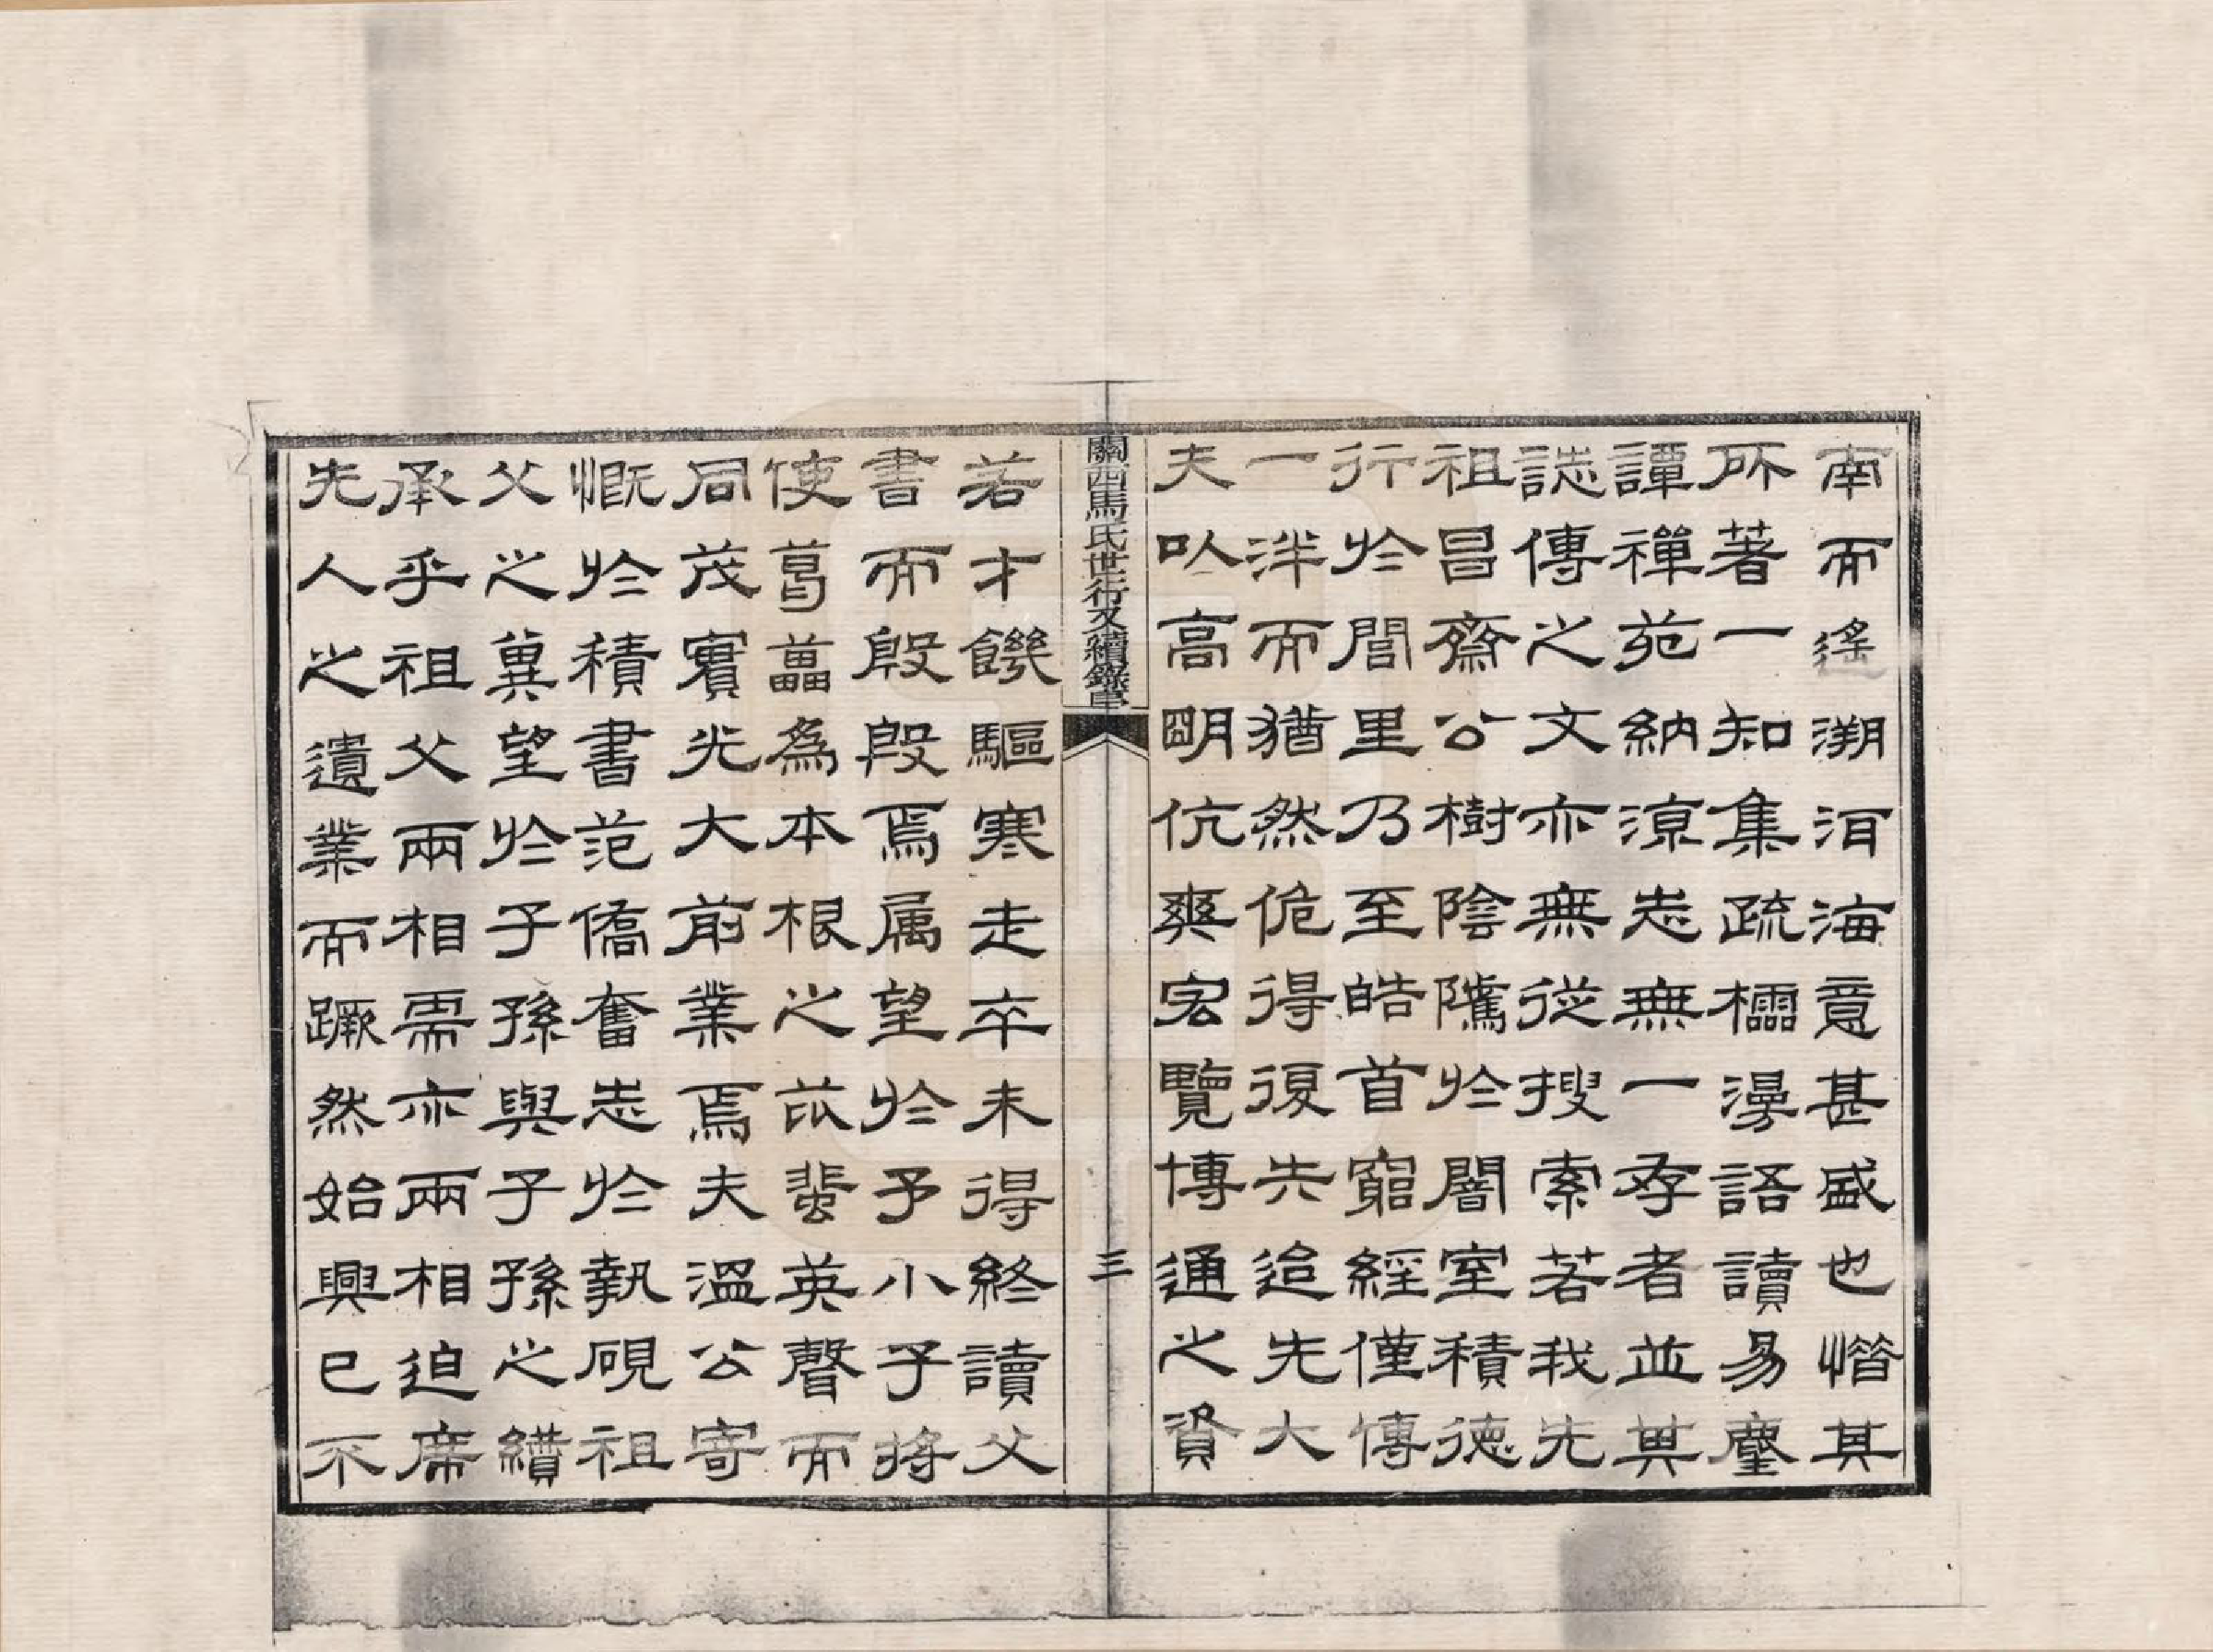 南而遙溯洄海意甚盛也惜其
所著一知集疏櫺漫語讀易麈
譚禪苑納涼志無一存者並其
誌傳之文亦無從搜索若我先
祖昌齋公樹陰隲於闇室積德
行於閭里乃至皓首窮經僅傳
一泮而猶然侘得復失迨先大
夫以高明伉爽宏覽博通之資
關西馬氏世行又續錄
三
若才饑驅寒走卒未得終讀父
書而殷殷焉属望於予小子將
使葛藟為本根之庇蜚英聲而
同茂實光大前業焉夫溫公寄
慨於積書范僑奮志於執硯祖
父之冀望於子孫與子孫之纘
承乎祖父兩相需亦兩相迫席
先人之遺業而蹶然始興已不